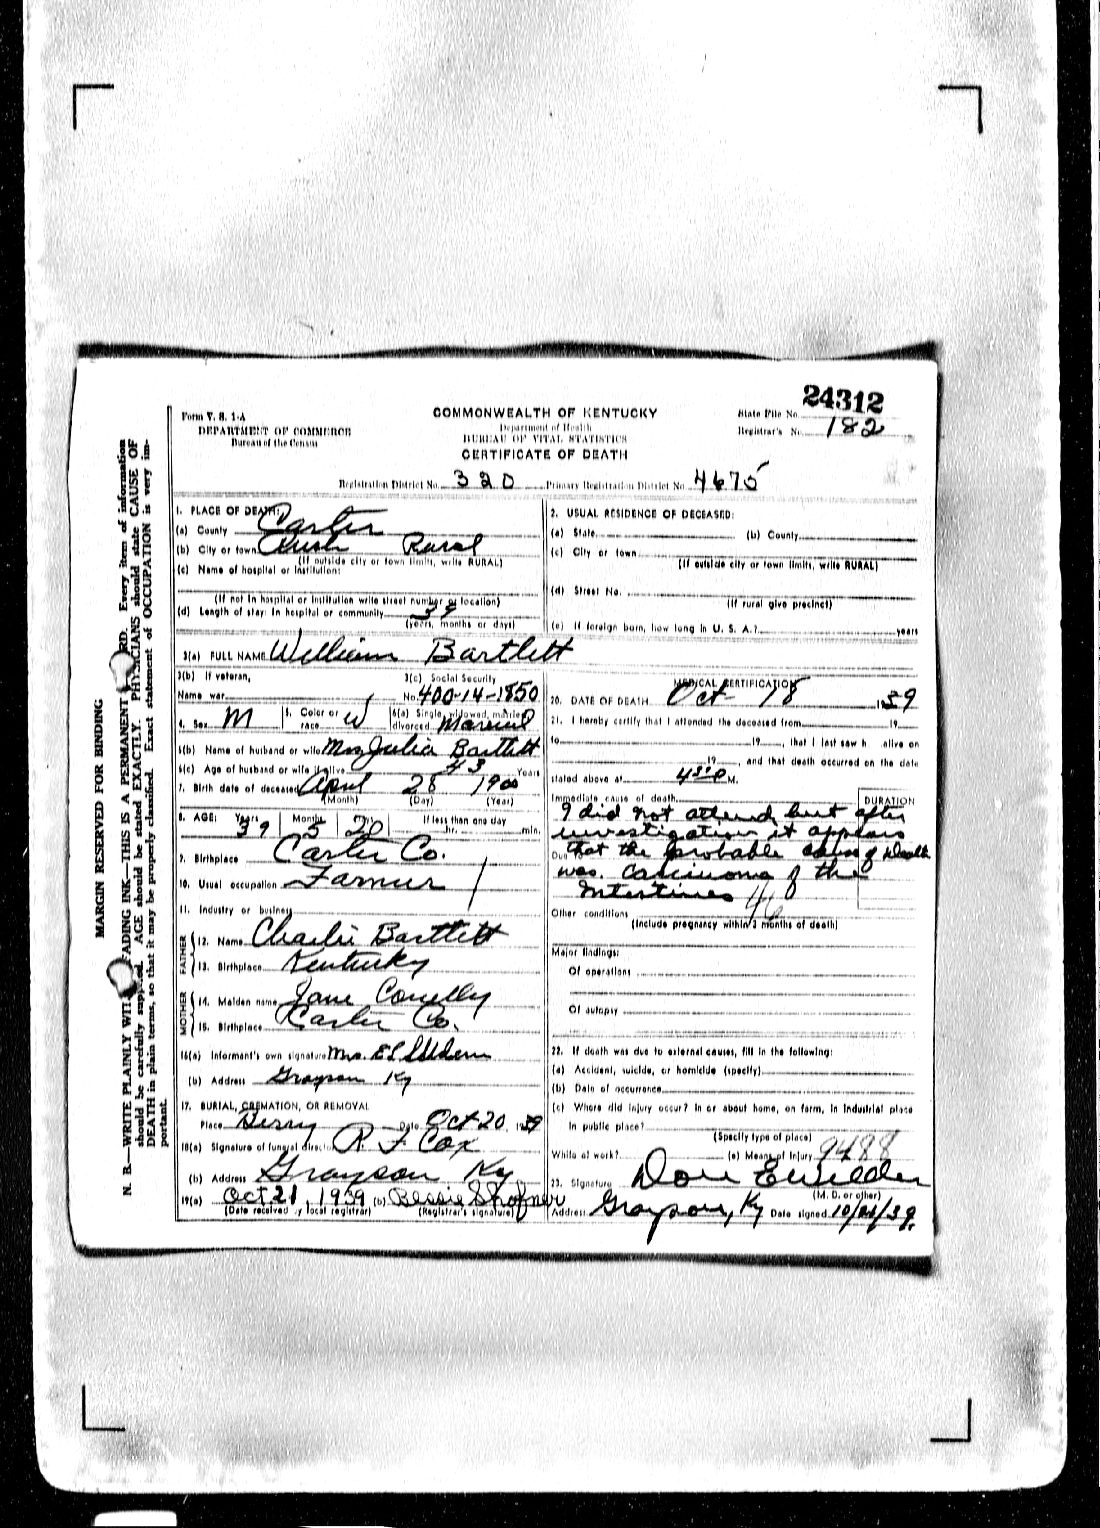 24312
Form V. S. 1-A
DEPARTMENT OF COMMERCE
Bureau of the Census
COMMONWEALTH OF KENTUCKY
Department of Health
BUREAU OF VITAL STATISTICS
CERTIFICATE OF DEATH
State File No.
Registrar's No. 182
Registration District No. 320 Primary Registration District No. 4675
MARGIN RESERVED FOR BINDING
N. B.—WRITE PLAINLY WITH FADING INK—THIS IS A PERMANENT RD. Every item of information
should be carefully supplied. AGE should be stated EXACTLY. PHYSICIANS should state CAUSE OF
DEATH in plain terms, so that it may be properly classified. Exact statement of OCCUPATION is very im-
portant.
1. PLACE OF DEATH:
(a) County Carter
(b) City or town Rush Rural
(If outside city or town limits, write RURAL)
(c) Name of hospital or institution:
(If not in hospital or institution write street number or location)
(d) Length of stay: In hospital or community 39
(Years, months or days)
2. USUAL RESIDENCE OF DECEASED:
(a) State (b) County
(c) City or town
(If outside city or town limits, write RURAL)
(d) Street No.
(If rural give precinct)
(e) If foreign born, how long in U. S. A.? years
3(a) FULL NAME William Bartlett
3(b) If veteran,
Name war
3(c) Social Security
No. 400-14-1850
4. Sex M 5. Color or race W 6(a) Single, widowed, married, divorced Married
6(b) Name of husband or wife Mrs Julia Bartlett
6(c) Age of husband or wife if alive 43 Years
7. Birth date of deceased April 28 1900
(Month) (Day) (Year)
8. AGE: Years 39 Months 5 Days 20 If less than one day
hr. min.
9. Birthplace Carter Co.
10. Usual occupation Farmer
11. Industry or business
FATHER
12. Name Charlie Bartlett
13. Birthplace Kentucky
MOTHER
14. Maiden name Jane Conelly
15. Birthplace Carter Co.
16(a) Informant's own signature Mrs. E
(b) Address Grayson Ky
17. BURIAL, CREMATION, OR REMOVAL
Place Berry Date Oct 20, 1939
18(a) Signature of funeral director R F Cox
(b) Address Grayson Ky
19(a) Oct 21, 1939 (b) Bessie Shofner
(Date received by local registrar) (Registrar's signature)
MEDICAL CERTIFICATION
20. DATE OF DEATH Oct- 18 1939
21. I hereby certify that I attended the deceased from 19
to 19 , that I last saw h alive on
19 , and that death occurred on the date
stated above at 4:30 P M.
Immediate cause of death DURATION
I did not attend, but after
investigation it appears
Due to that the probable cause of death
was carcinoma of the
Intestines 46
Other conditions
(Include pregnancy within 3 months of death)
Major findings:
Of operations
Of autopsy
22. If death was due to external causes, fill in the following:
(a) Accident, suicide, or homicide (specify)
(b) Date of occurrence
(c) Where did injury occur? In or about home, on farm, in industrial place
in public place?
(Specify type of place)
While at work? (e) Means of Injury 9488
23. Signature Don E Wilder
(M. D. or other)
Address Grayson, Ky Date signed 10/21/39.